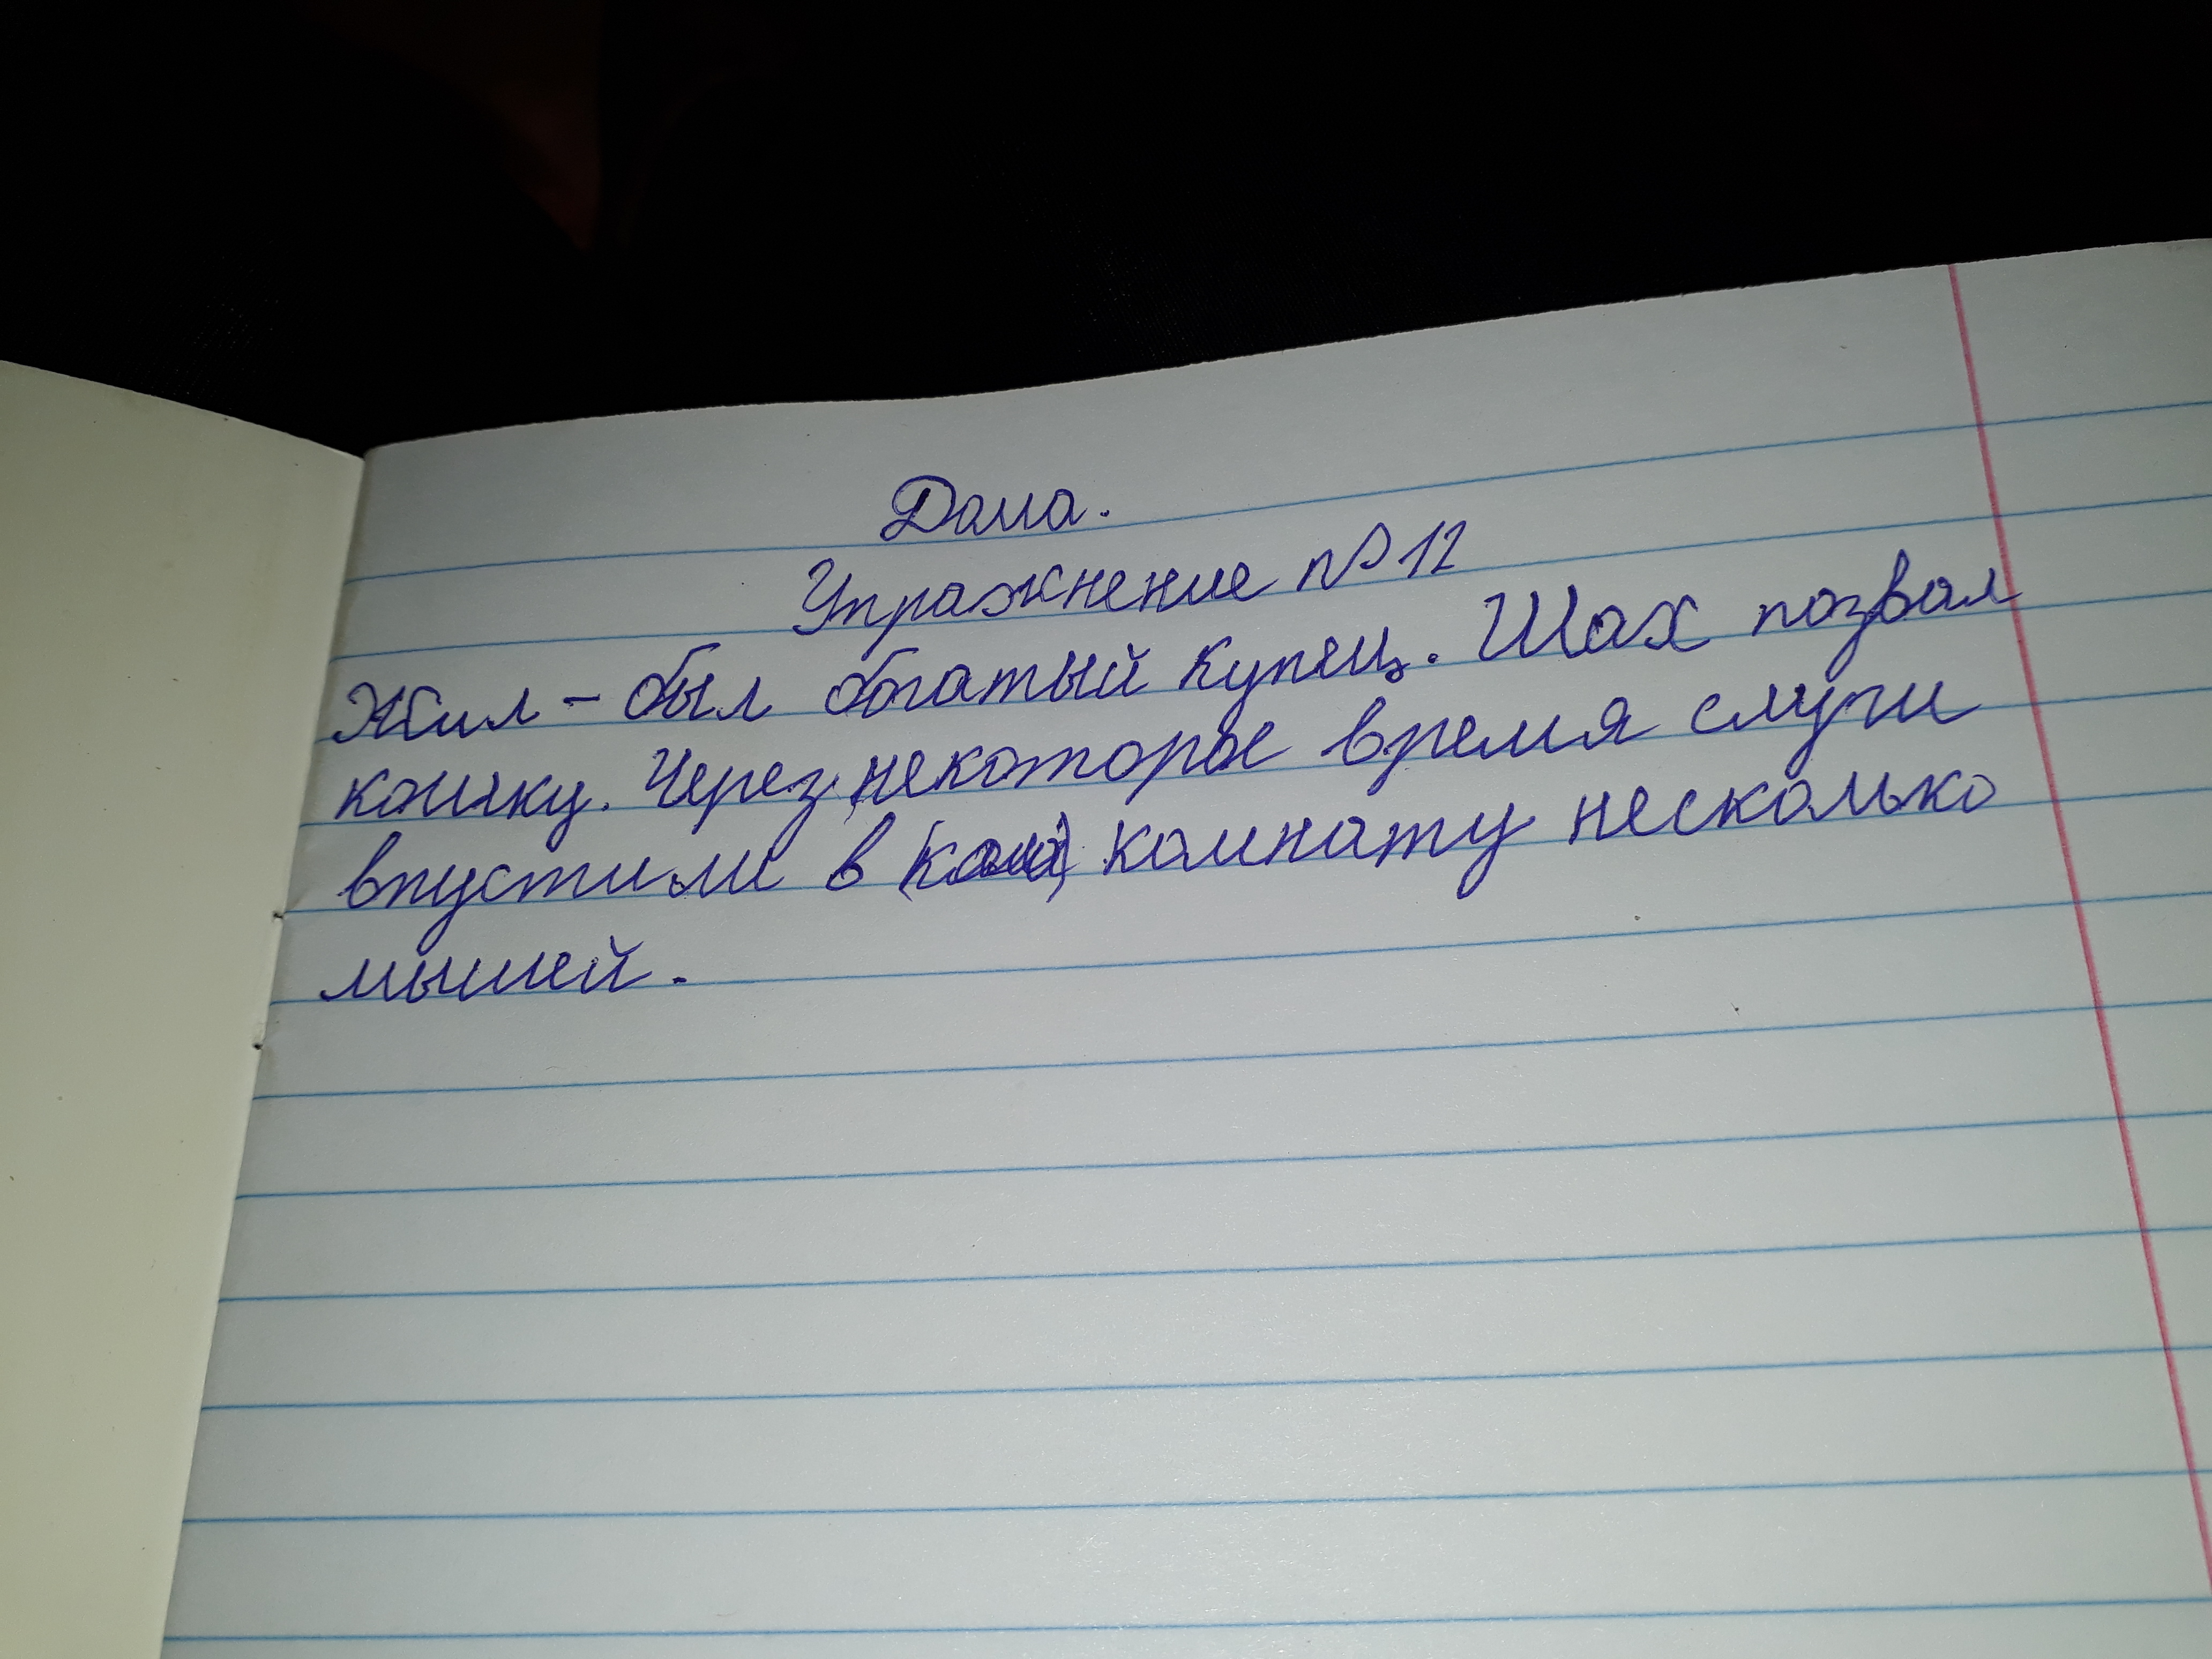 Дома.
Упражнение №12
Жил-был богатый купец. Шах позвал
кошку. Через некоторое время слуги
впустили в (ком) комнату несколько
мышей.